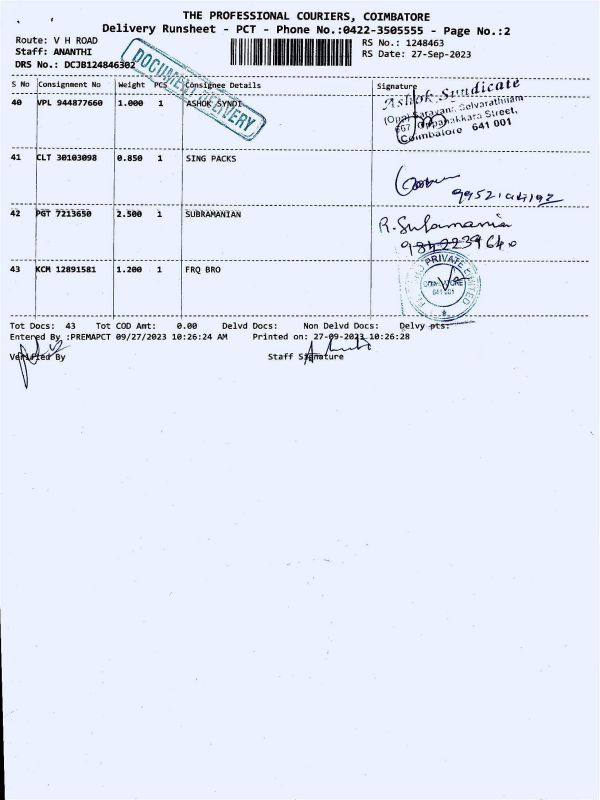 THE PROFESSIONAL COURIERS, COIMBATORE
Delivery Runsheet - PCT - Phone No.:0422-3505555 - Page No.:2
Route: V H ROAD
RS No.: 1248463
Staff: ANANTHI
RS Date: 27-Sep-2023
DRS No.: DCJB124846302
DOCUMENT DELIVERY
S No Consignment No Weight PCS Consignee Details Signature
40 VPL 944877660 1.000 1 ASHOK SYNDI
Ashok Syndicate
Selvarathinam
667, Oppanakkara Street,
Coimbatore 641 001
41 CLT 30103098 0.850 1 SING PACKS
42 PGT 7213650 2.500 1 SUBRAMANIAN
R. Subramanian
43 KCM 12891581 1.200 1 FRQ BRO
PRIVATE LIMITED
Tot Docs: 43 Tot COD Amt: 0.00 Delvd Docs: Non Delvd Docs: Delvy pts:
Entered By :PREMAPCT 09/27/2023 10:26:24 AM Printed on: 27-09-2023 10:26:28
Verified By Staff Signature